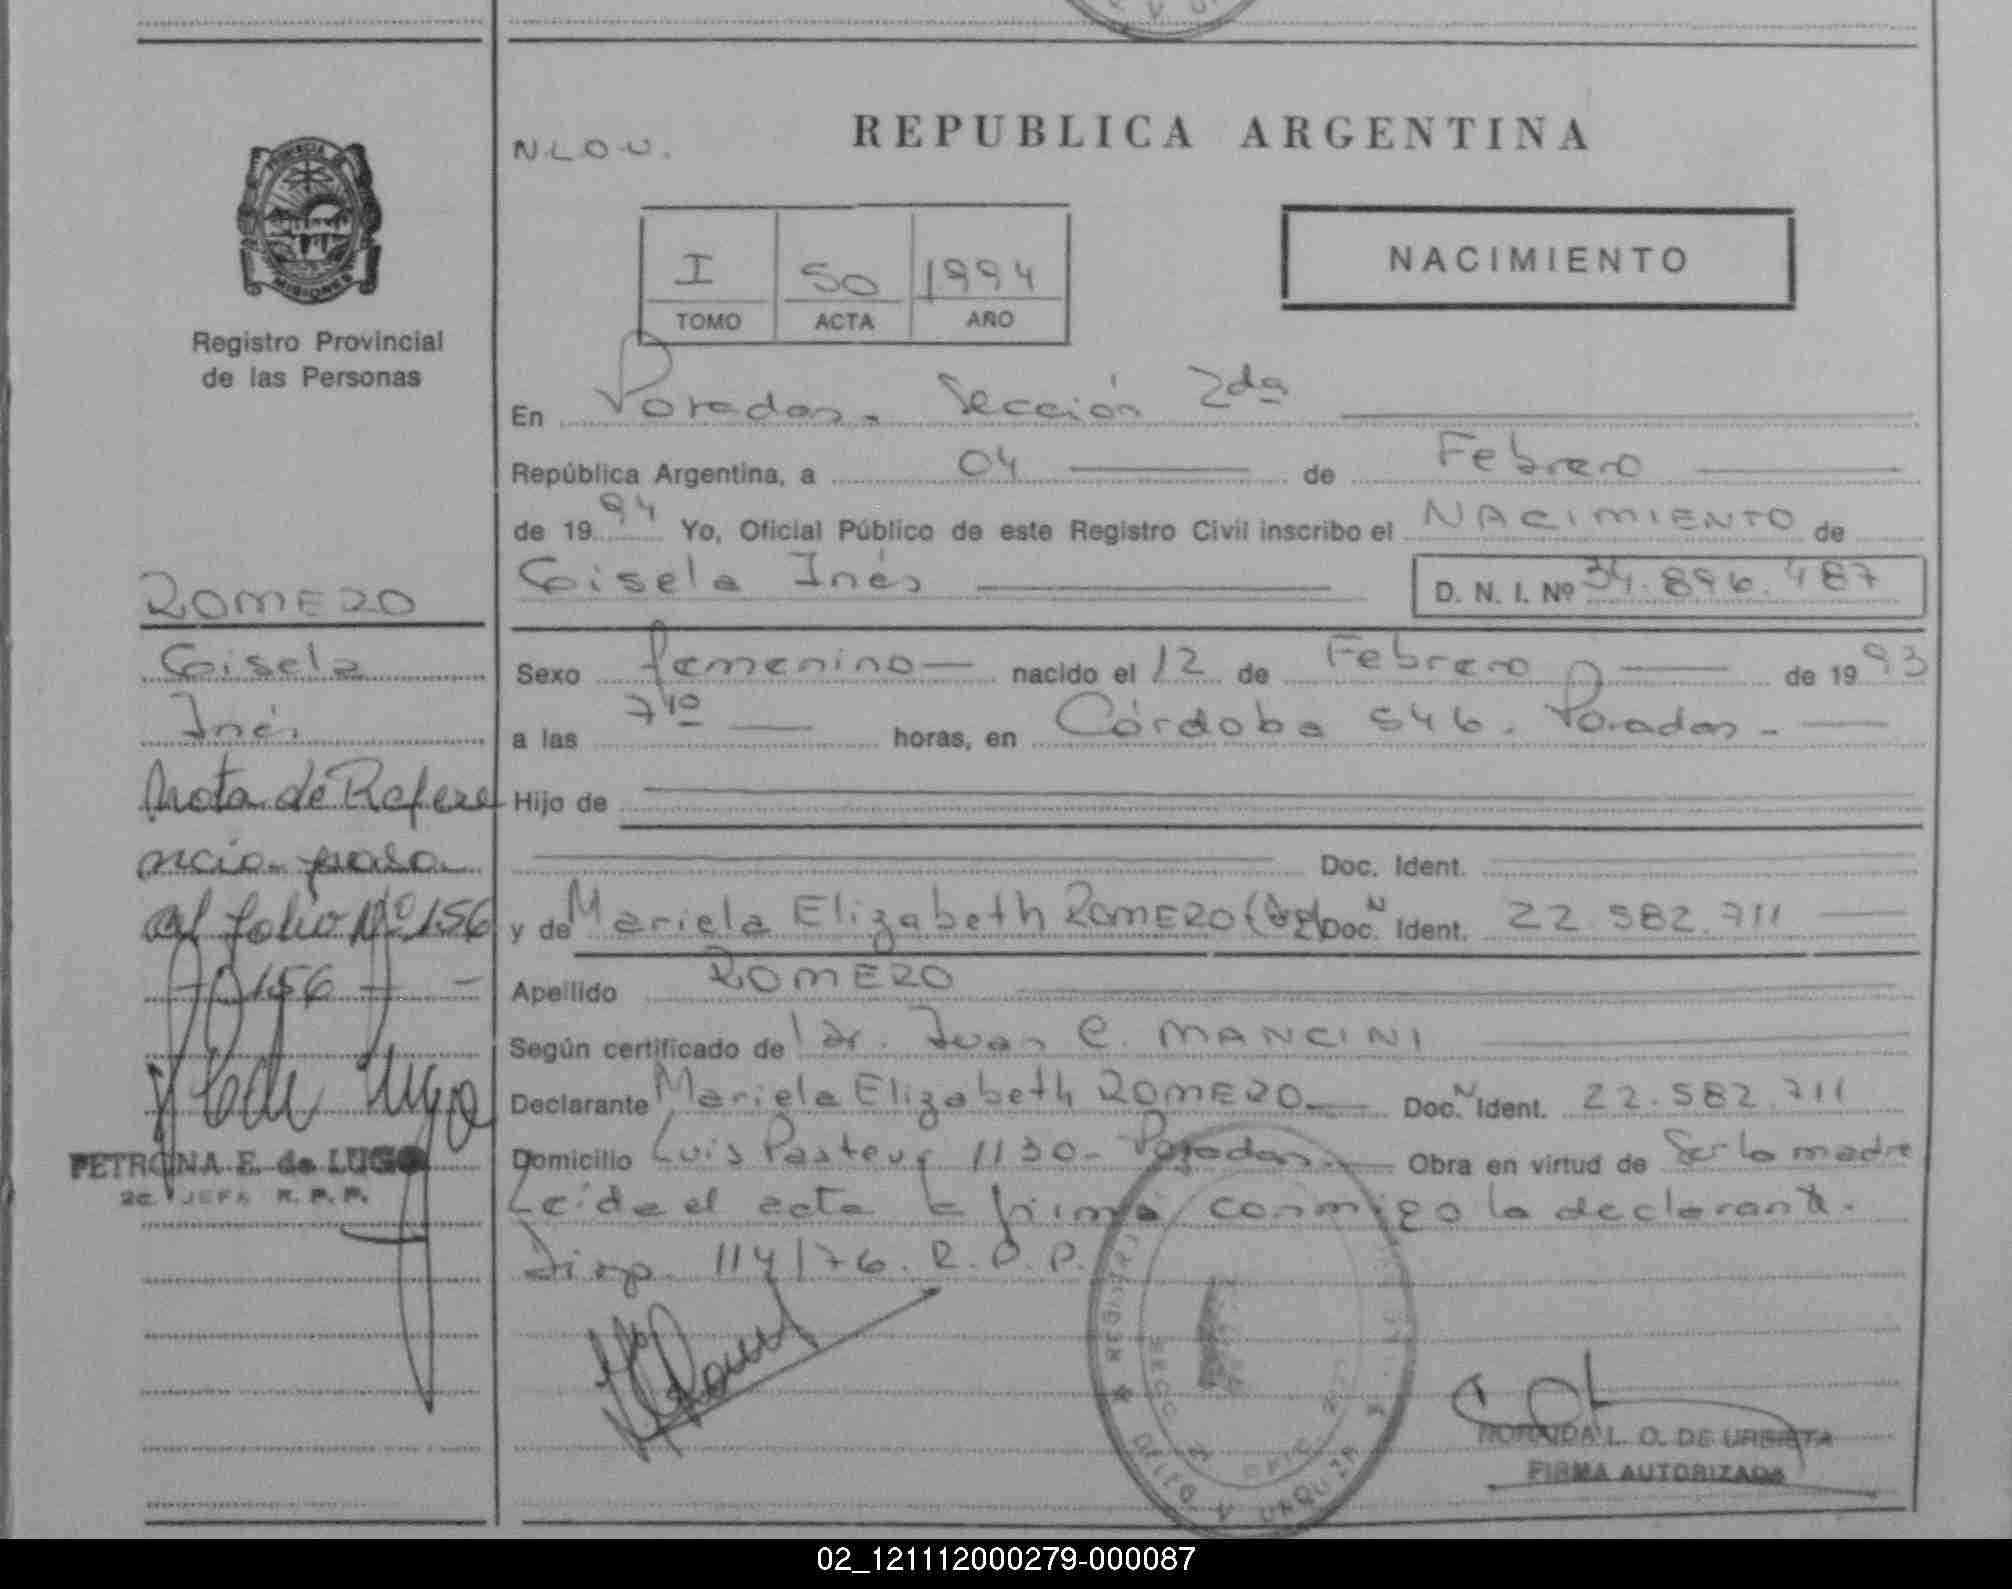 REPUBLICA ARGENTINA
N.L.O.U.
PROVINCIA DE
MISIONES
Registro Provincial
de las Personas
I 50 1994
TOMO ACTA AÑO
NACIMIENTO
En Posadas. Sección 2da
República Argentina, a 04 de Febrero
de 1994 Yo, Oficial Público de este Registro Civil inscribo el NACIMIENTO de
Gisela Inés D. N. I. Nº 34.896.487
Sexo femenino nacido el 12 de Febrero de 1993
a las 7 40 horas, en Córdoba 546. Posadas.
Hijo de
Doc. Ident.
y de Mariela Elizabeth ROMERO Doc. N Ident. 22.582.711
Apellido ROMERO
Según certificado de Dr. Juan C. MANCINI
Declarante Mariela Elizabeth ROMERO Doc. N Ident. 22.582.711
Domicilio Luis Pasteur 1130 - Posadas. Obra en virtud de Ser la madre
Leída el acta la firma conmigo la declarante.
Disp. 114/76. R.P.P.
ROMERO
Gisela
Inés
Nota de Refere
ncia pasa
al folio Nº 156
156
PETRONA E. de LUGO
2c. JEFA R. P. P.
DELEG
URQUIZA
L. O. DE URBIETA
FIRMA AUTORIZADA
02_121112000279-000087